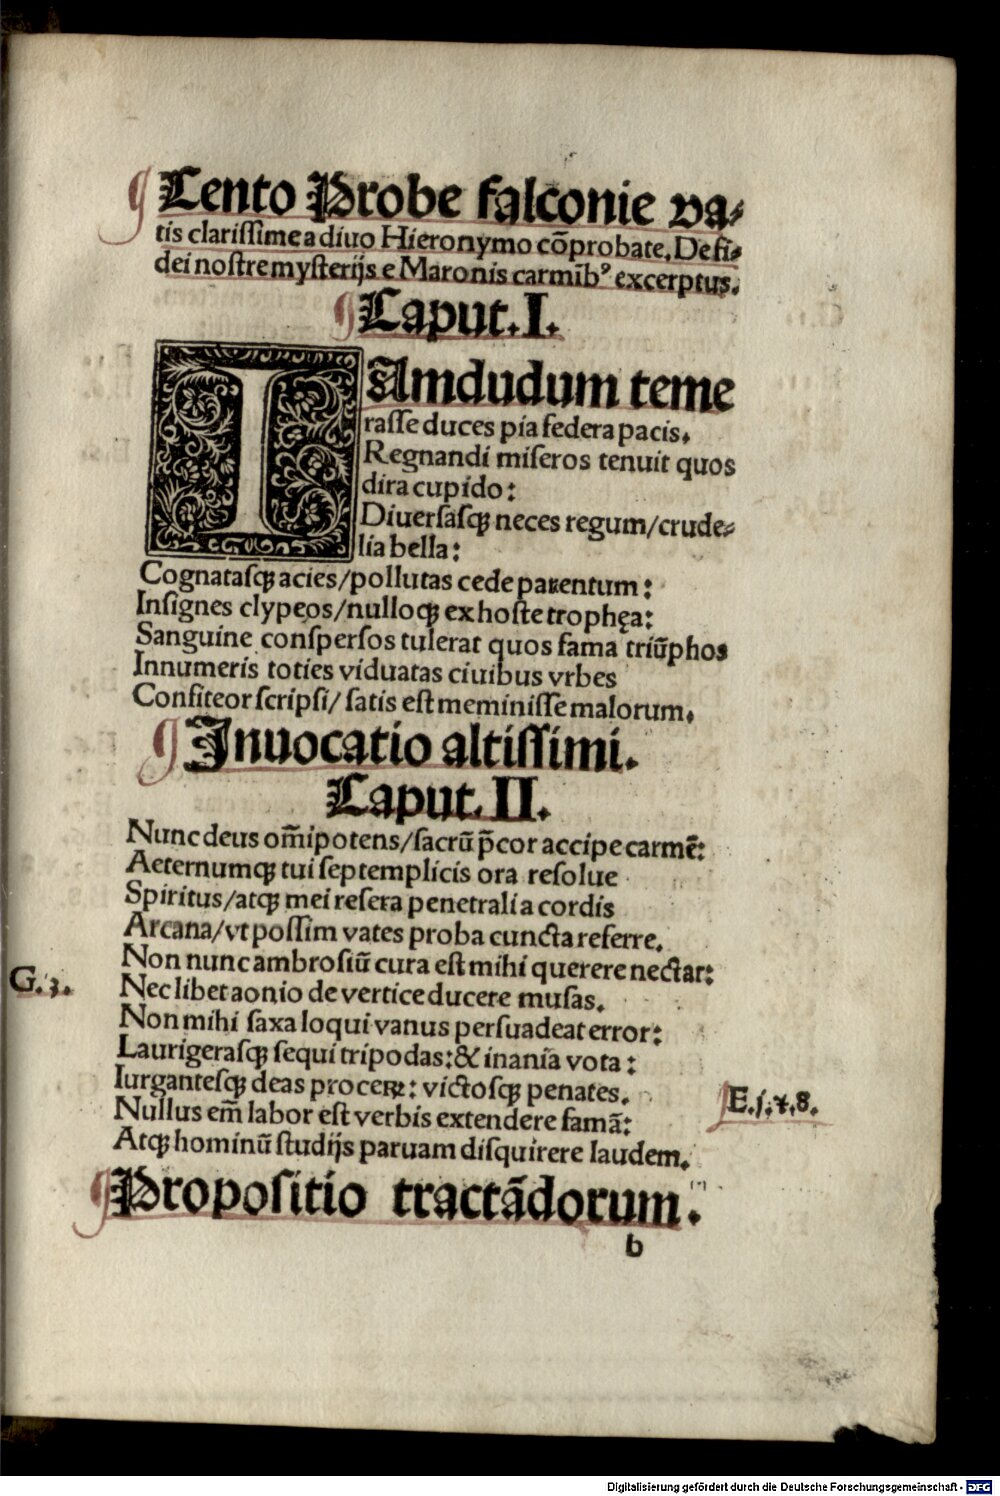 ¶ Cento Probe falconie va⸗
tis clarissime a diuo Hieronymo cōprobate. De fi⸗
dei nostre mysterijs e Maronis carmībꝰ excerptus.
¶ Caput. I.
IAmdudum teme
rasse duces pia federa pacis.
Regnandi miseros tenuit quos
dira cupido:
Diuersasqꝫ neces regum/crude⸗
lia bella:
Cognatasqꝫ acies/pollutas cede parentum:
Insignes clypeos/nulloqꝫ ex hoste trophęa:
Sanguine conspersos tulerat quos fama triūphos
Innumeris toties viduatas ciuibus vrbes
Confiteor scripsi/ satis est meminisse malorum.
¶ Inuocatio altissimi.
Caput. II.
Nunc deus om̄ipotens/sacrū p̄cor accipe carmē:
Aeternumqꝫ tui septemplicis ora resolue
Spiritus/atqꝫ mei resera penetralia cordis
Arcana/vt possim vates proba cuncta referre.
Non nunc ambrosiū cura est mihi querere nectar:
Nec libet aonio de vertice ducere musas.
G. 3.
Non mihi saxa loqui vanus persuadeat error:
Laurigerasqꝫ sequi tripodas: & inania vota:
Iurgantesqꝫ deas proceꝝ: victosqꝫ penates.
Nullus em̄ labor est verbis extendere famā:
E. 5. 7. 8.
Atqꝫ hominū studijs paruam disquirere laudem.
¶ Propositio tractādorum.
b
Digitalisierung gefördert durch die Deutsche Forschungsgemeinschaft - DFG